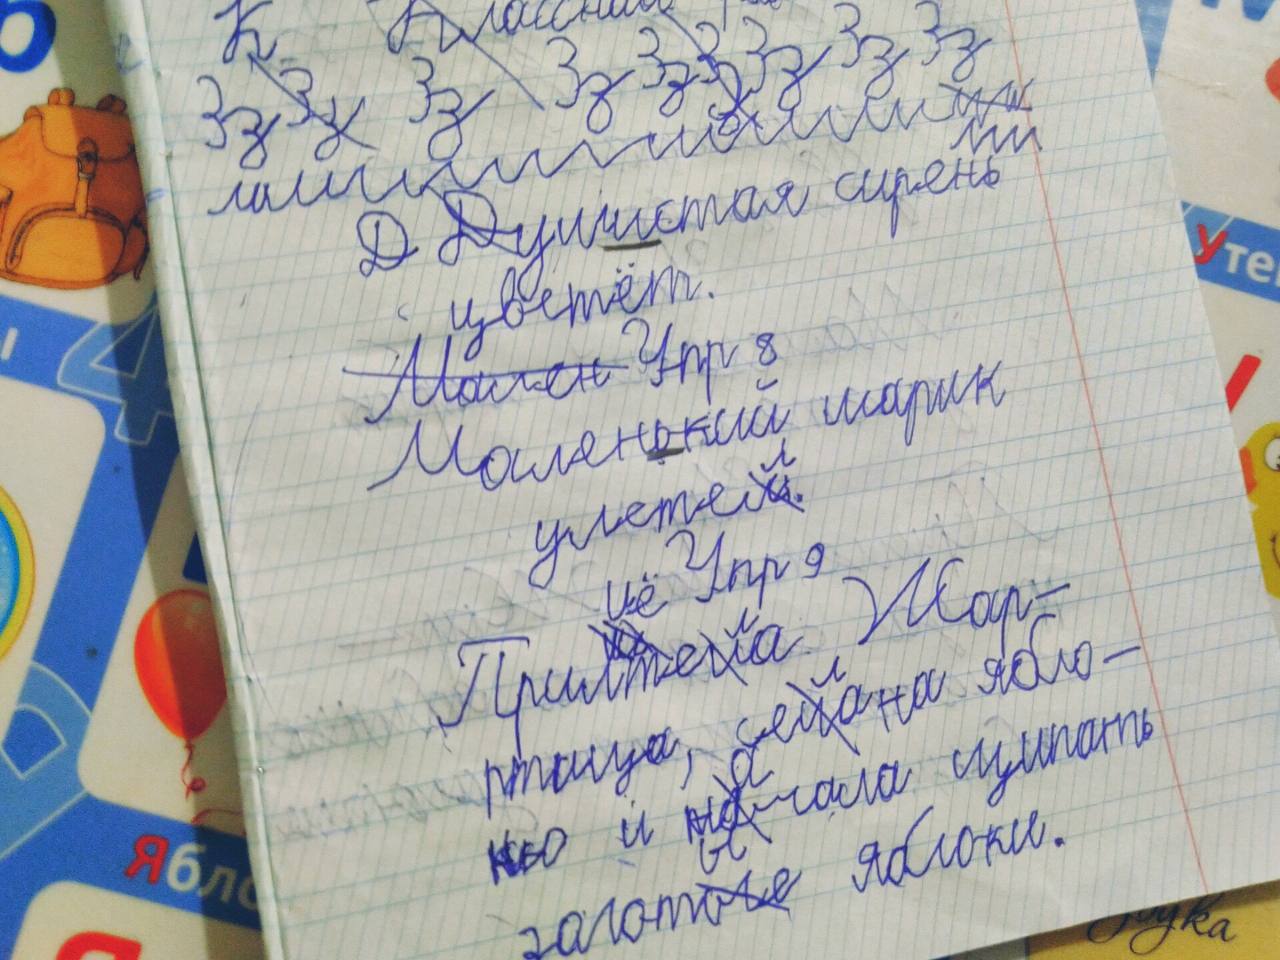 К Классная
Зз Зз Зз Зз Зз Зз Зз Зз Зз
Д Душистая сирень
цветёт.
Мален Упр 8
Маленький шарик
улетел.
Упр 9
Прилетела Жар-
птица, села на ябло-
нью и начала щипать
золотые яблоки.
Утё
Ябло